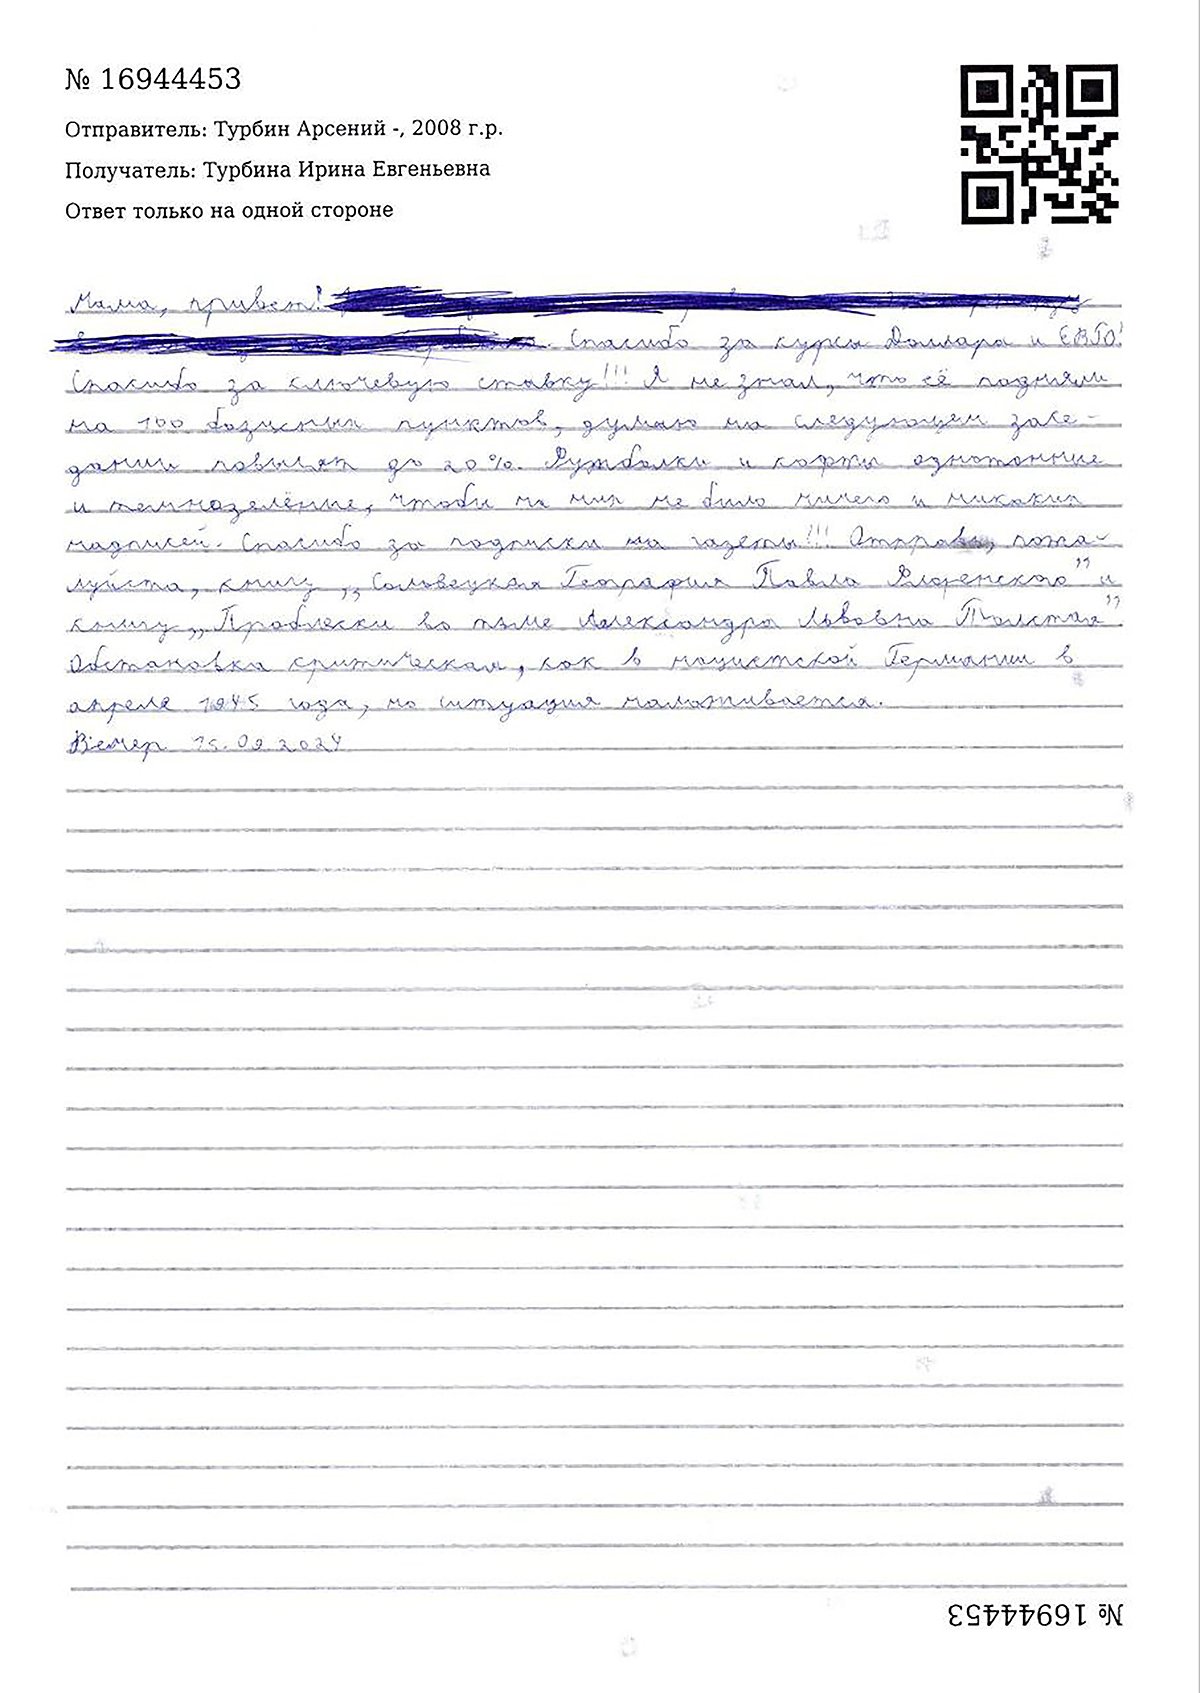 № 16944453
Отправитель: Турбин Арсений -, 2008 г.р.
Получатель: Турбина Ирина Евгеньевна
Ответ только на одной стороне
Мама, привет!
Спасибо за курсы Доллара и ЕВРО!
Спасибо за ключевую ставку!!! Я не знал, что её подняли
на 100 базисных пунктов, думаю на следующем засе-
дании повысят до 20%. Футболки и кофты однотонные
и темнозелёные, чтобы на них не было ничего и никаких
надписей. Спасибо за подписки на газеты!!! Отправь, пожа-
луйста, книгу „Соловецкая География Павла Флоренского” и
книгу „Проблески во тьме Александра Львовна Толстая”
Обстановка критическая, как в нацистской Германии в
апреле 1945 года, но ситуация налаживается.
Вечер 15.09.2024
№ 16944453